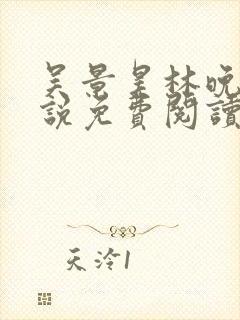 吴景星林晚
說免費閱讀
天泠1